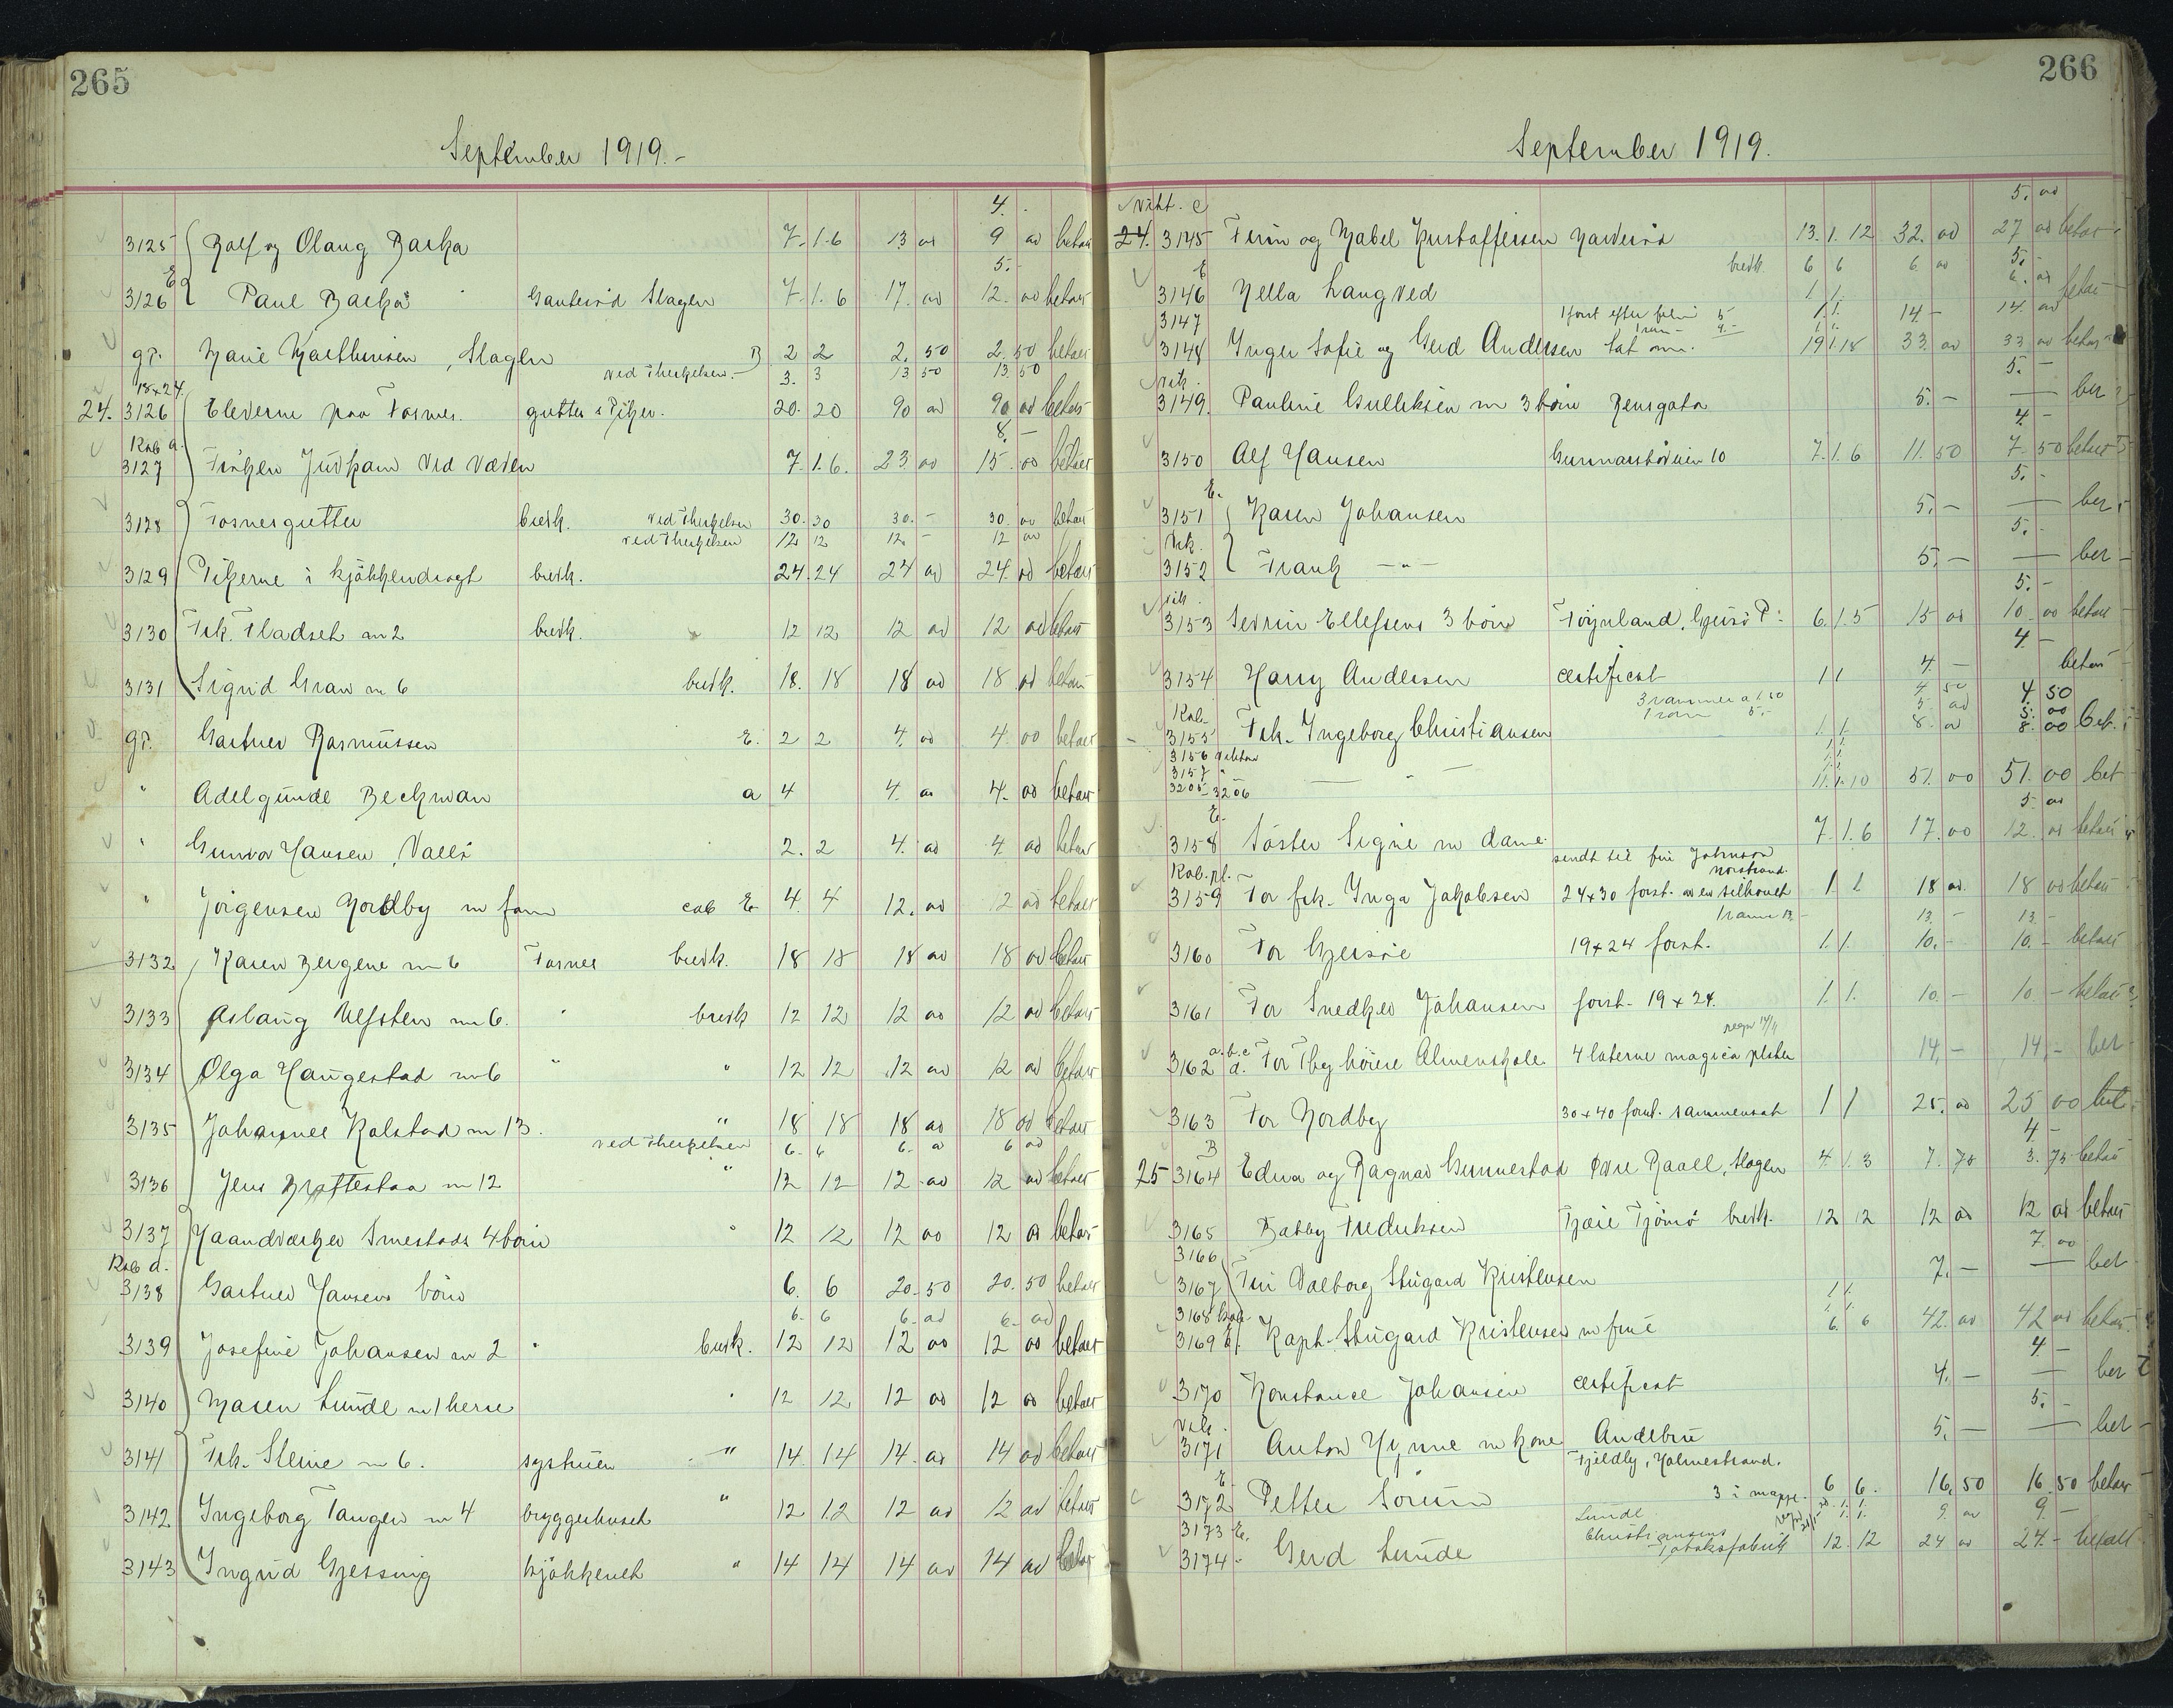 265
September 1919.-
4. -
3125 Rolf og Olaug Backa 7. 1. 6 13 00 9 00 betalt
E 5. -
3126 Paul Backa Slagen 7. 1. 6 17. 00 12. 00 betalt
gr. Marie Mathisen, Slagen B 2 2 2. 50 2. 50 betalt
ved Therkelsen. - 3. 3 13 50 13 50
18x24
24. 3126 Eleverne paa Fosnes. gutter & Piker. 20. 20 90 00 90 00 betalt
Kab a. 8. -
3127 Frøken ved Væven 7. 1. 6. 23. 00 15. 00 betalt
3128 Fosnesgutter brevk. ved Therkelsen 30. 30 30. - 30. 00 betalt
ved Therkelsen 12 12 12. - 12 00
3129 Pikerne i kjøkkendragt brevk. 24. 24 24 00 24. 00 betalt
3130 Frk. Fladseth m 2 brevk. 12 12 12 00 12 00 betalt
3131 Sigrid Gran m 6 brevk. 18. 18 18 00 18 00 betalt
gr. Gartner Rasmussen E. 2 2 4. 00 4. 00 betalt
" Adelgunde Beckman a 4 4. 00 4. 00 betalt
" Gunvor Hansen, Vallø 2. 2 4. 00 4 00 betalt
" Jørgensen Nordby m fam cab E 4. 4 12. 00 12 00 betalt
3132 Karen Bergene m 6 Fosnes brevk. 18 18 18 00 18 00 betalt
3133 Aslaug Ulfsten m 6. " brevk 12 12 12 00 12 00 betalt
3134 Olga Haugestad m 6 " " 12 12 12 00 12 00 betalt
3135 Johannes Kolstad m 13. " 18 18 18 00 18 00 betalt
ved Therkelsen 6. 6 6. 00 6 00
3136 Jens Brattestaa m 12 " 12 12 12 00 12 00 betalt
3137 Haandverker Smestads 4 børn " 12 12 12 00 12 00 betalt
Kab d.
3138 Gartner Hansens børn 6. 6 20. 50 20. 50 betalt
6. 6 6. 00 6. 00
3139 Josefine Johansen m 2 " brevk. 12 12 12 00 12 00 betalt
3140 Maren Lunde m 1 herre " 12 12 12 00 12 00 betalt
3141 Frk. Steine m 6. systuen " 14. 14 14. 00 14 00 betalt
3142 Ingeborg Tangen m 4 bryggerhuset " 12 12 12 00 12 00 betalt
3143 Ingrid Gjessing kjøkkenet " 14 14 14 00 14 00 betalt
266
September 1919.
visit. c 5. 00
24. 3145 Finn og Mabel Kristoffersen 13. 1. 12 32. 00 27 00 betalt
brevk 6 6 6. 00 5. -
E 6. 00
3146 Nella Langved 1 1. betalt
3147 1 forst efter film 5 1. 1. 14. - 14. 00
1 ram - 9. -
3148 Inger Sofie og Gerd Andersen tat om. 19 1. 18 33. 00 33 00 betalt
visit. 5. -
3149. Pauline Gulliksen m 3 børn Rensgata 5. - — ber
4. -
3150 Alf Hansen Gunnarsbøveien 10 7. 1. 6 11. 50 7. 50 betalt
E. 5. -
3151 Karen Johansen 5. - — ber
Visk. 5. -
3152 Frank — " — 5. - — ber
visit. 5. -
3153 Severin Ellefsens 3 børn Føynland, 6. 1. 5 15 00 10. 00 betalt
4. -
3154 Harry Andersen certificat 1 1 4. - betalt
3 rammer a 1.50 4 50 4. 50
Kab. 1 ram 5. - 5. 00 5. 00
3155 Frk. Ingeborg Christiansen 1. 1. 8. 00 8. 00 Bet.
3156 visitkort 1. 1.
3157 " 1. 1.
3205-3206 — " — 11. 1. 10 51. 00 51. 00 bet
E. 5. 00
3158 Søster Signe m dame 7. 1. 6 17. 00 12. 00 betalt
Kab. pl. - sendt til frue Johnson
Norstrand
3159 For frk. Inga Jakobsen 24x30 forst. av en silhouet 1. 1 18 00 18 00 betalt
1 ram 13. - 13. - 13. -
3160 For Gjersøe 19x24 forst. 1. 1. 10. - 10. - betalt
3161 For Snedker Johansen forst. 19 x 24. 1. 1. 10. - 10 - betalt
a. b. c
3162 d. For Tbg høiere Almenskole 4 laterne magica plater 14. - 14. - ber
3163 For Nordby 30x40 forst. sammensat 1 1 25. 00 25 00 bet.
B 4. -
25 3164 Edna og Ragnar Gunnestad Øvre Raaell, Slagen 4. 1. 3 7. 75 3. 75 betalt
3165 Babby Fredriksen Tjøme brevk. 12 12 12 00 12 00 betalt
3166 7. 00
3167 Fru Valborg Stugard Kristensen 7. - — ber
3168 Kab. 1 1.
3169 Kapt. Stugard Kristensen m frue 6. 6 42. 00 42 00 betalt
4 -
3170 Konstance Johansen certificat 4. - — ber
Visk. 5. -
3171 Anton Hynne m kone Andebu 5. - — ber
E. Fjeldby, Holmestrand.
3172 Petter Sørum 3 i mappe. 6 6. 16. 50 16. 50 betalt
3173 E. Lunde 1. 1. 9. 00 9. -
Christiansens
3174 - Gerd Lunde Tobaksfabrik 12. 12 24 00 24. - betalt